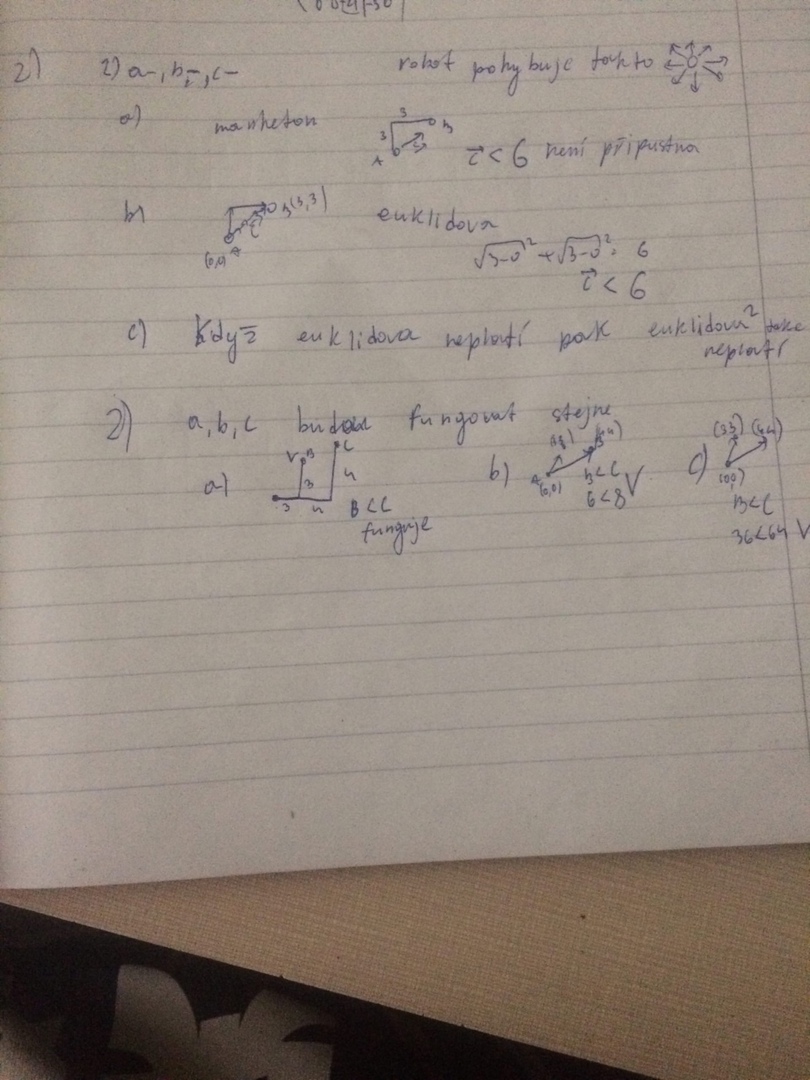 2) 1) a-, b-, c- robot pohybuje takto
a) manheton 3 3 A B č < 6 není přípustna
b) B(3,3) (0,0) A č euklidova
√3-0² + √3-0² = 6
č < 6
c) Když euklidova neplatí pak euklidova² take
neplatí
2) a, b, c budou fungovat stejne
a) V B C 3 3 4 4 B < C
funguje
b) A (0,0) (3,3) (4,4) B < C
6 < 8 V
c) (3,3) (4,4) (0,0) B < C
36 < 64 V